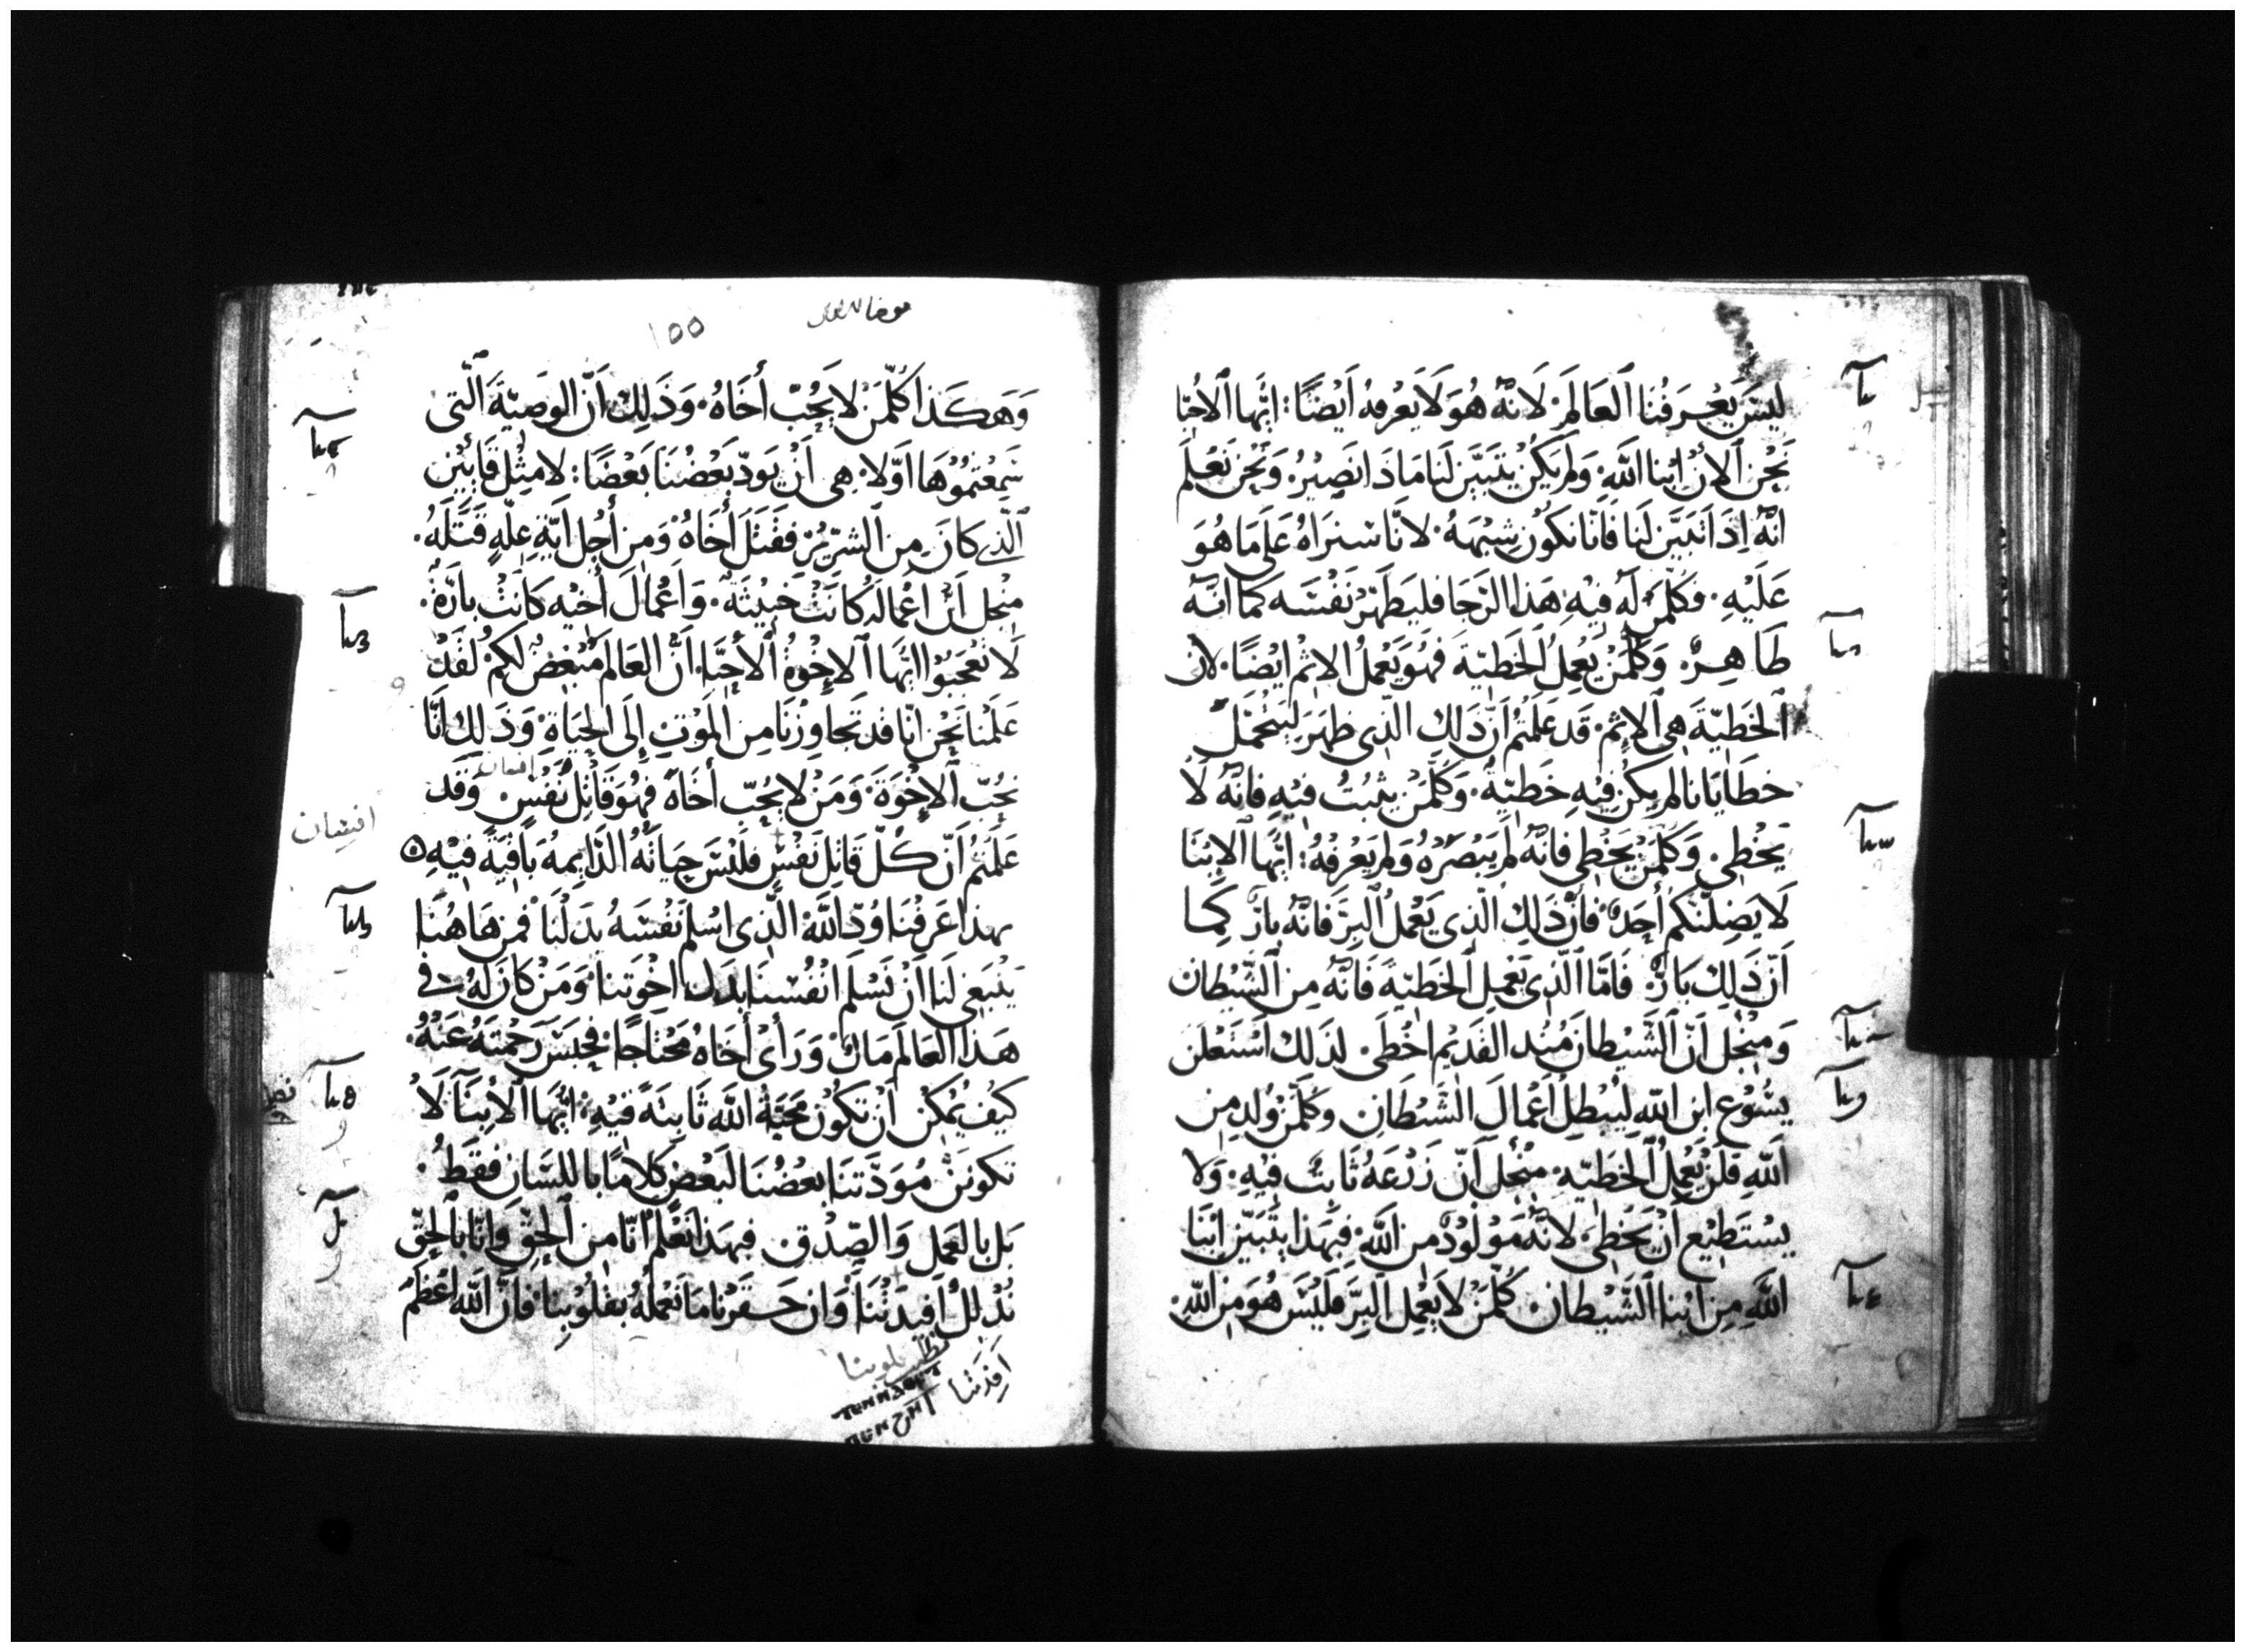 ليسَ يَعْرِفُنا ٱلعَالَم لَانهُ هُوَ لَا يَعْرِفهُ اَيْضًا: ايُّها ٱلاحِبّا
نَحْن ٱلانْ ابْنا اللَّهِ وَلم يَكُنْ يتبَيَّن لَنا مَا ذَا نَصِيْرُ وَنَحْن نَعْلم
انّهُ اِذَا تبَيَّن لَنا فَانّا نكوْن شِبْهَهُ لانّا سَنَراهُ عَلى مَا هُوَ
عَلَيْهِ. فكُلّمَن لَهُ فِيْهِ هَذا الرَجَا فليَطَهّرْ نَفْسَه كمَا انّهُ
طَاهِرٌ. وَكُلّمَنْ يَعْمِلُ ٱلخَطيّة فَهُوَ يَعْمِلُ الاثم ايْضًا. لان
ٱلخَطيّةَ هِى ٱلاثم. قَد عَلمْتُم اَنّ ذَلِك الّذى ظهَرَ لِيَتحْمّلَ
خطَايَانا لم يكُن فِيْهِ خَطيّةٌ. وَكُلّمَنْ يثبُتُ فيْهِ فانّهُ لا
يَخْطِى. وَكلّمَنْ يَخْطِى فانّهُ لم يَبْصِرْهُ وَلم يَعْرِفهُ: ايُّها ٱلابْنَا
لَا يَضِلّنّكم أحَدٌ. فان ذَلِك الّذى يَعْمَلُ ٱلبِرّ فانّهُ بارٌ كمَا
اَنّ ذَلِك بَارٌ. فَامّا ٱلّذى يَعْمِل ٱلخَطيّة فَانّهُ مِن ٱلشَّيْطان
وَمنْجل اَنّ ٱلشّيْطان مُنْد القَديْم اخْطَى. لذلك اسْتَعْلن
يسُوْع ابن اللّه لِيُبْطِلُ اَعْمَالَ الشّيْطَانِ وكلّمَنْ وُلد مِن
اللّهِ فَلَنْ يَعْمِلُ ٱلخَطيّه. منْجَل اَنّ زَرْعَهُ ثَابتٌ فيْهِ. وَلا
يسْتَطِيْع اَنْ يَخْطِى لانّهُ مَوْلوْدٌ من اللّه. فبِهَذا يتَبَيّن ابْنَا
اللّهِ مِن ابْنا ٱلشَّيْطان. كُلّمَنْ لا يَعْمِل ٱلبِرّ فلَيْسَ هُوَ مِن اللّهِ.
١٥٥
وَهَكَذا كُلّمَنْ لا يَحُبّ أخَاهُ. وَذَلِك اَنّ الوَصِيّةَ الّتى
سَمِعْتمُوْهَا اوّلا. هِى اَنْ يَودّ بَعْضُنَا بَعْضًا: لا مثِل قَابِيْن
ٱلّذى كانَ مِن ٱلشرّيْرْ فقَتَلَ أخَاهُ وَمِن أجْل ايّةِ علّهٍ قَتَلَهُ.
منْجل اَنّ اعْمالهُ كانَتْ خَبِيْثَة. وَاعْمَالَ أخيْه كانَتْ بارّةٌ.
لَا تَعْجَبُوْا ايُّها ٱلاخْوَةُ ٱلأحِبّا. انّ العَالم مُبْغِضٌ لَكم. لقَدْ
عَلمْنا نَحْن انّا قد تَجاوزْنا مِن المَوْتِ اِلَى الحيَاةِ. وَذَلك انّا
نحُبّ ٱلاخْوَة. وَمَنْ لا يحُبّ أخَاهُ فهُوَ قاتِل نَفْسٍ. وَقَد
انسان
عَلمْتم اَنّ كُلّ قَاتِل نَفْسٍ فلَيْسَ حِيَاتُهُ الدّايمهُ بَاقيَة فيْهِ
بهذا عَرفْنَا وُدّ اللّه الّذى اسْلم نَفْسَهُ بدَلْنَا فمن هَاهُنَا
يَنْبَغى لَنا اَنْ نَسْلم انفُسَنا بدَل اخوَتنا وَمَنْ كانَ لهُ فى
هَذا العَالم مَالٌ. وَرَأى أخَاهُ مُحْتاجًا. فحَبَسَ رَحْمتَهُ عَنْهُ.
كيْف يُمْكِن اَنْ تكُوْن مَحَبّةُ اللّه ثابتَة فيْهِ: ايُّها ٱلابْنَا لا
تكونَنّ مُوَدّتنَا بعْضُنَا لبَعْضٍ كلامًا با للسَانِ فقَطْ.
بَل بالعَمل وَالصّدْقِ. فبهَذا نعْلم انّا من ٱلحقّ وَانّا بٱلحقّ
نُدْلل افِيدَتْنا وَان حَقّرْنا مَا نَعْملهُ بقلُوْبِنا فانّ اللّه اعْظم
افِدَتنا